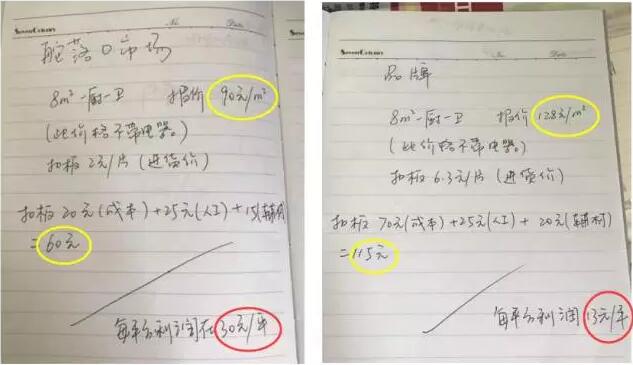 SevenColours No. Date
舵落口市场
8m² 一厨一卫 报价 90元/m²
(此价格不带电器。)
扣板 2元/片 (进货价)
扣板 20元(成本)+25元(人工)+15(辅材
=60元
每平方利润在30元/平
SevenColours No. Date
品牌
8m² 一厨一卫 报价 128元/m²
(此价格不带电器。)
扣板 6.3元/片 (进货价)
扣板 70元(成本)+25元(人工)+ 20元(辅材)
=115元
每平方利润 13元/平